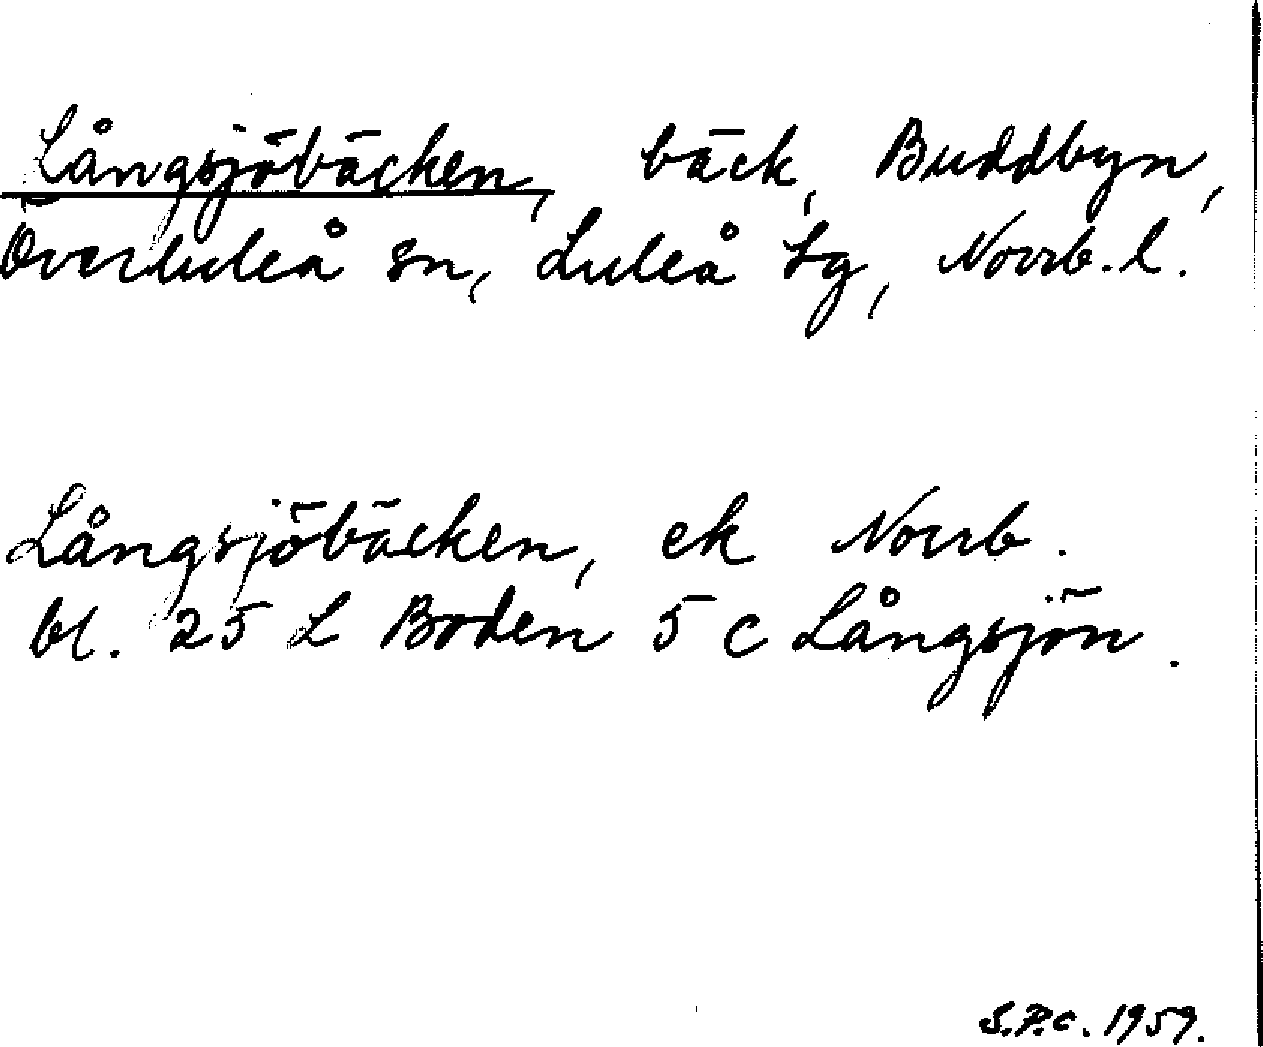 Långsjöbäcken, bäck, Buddbyn,
Överluleå sn, Luleå tg, Norrb. l.
Långsjöbäcken, ek Norrb.
bl. 25 L Boden 5 c Långsjön.
S.P.C. 1959.